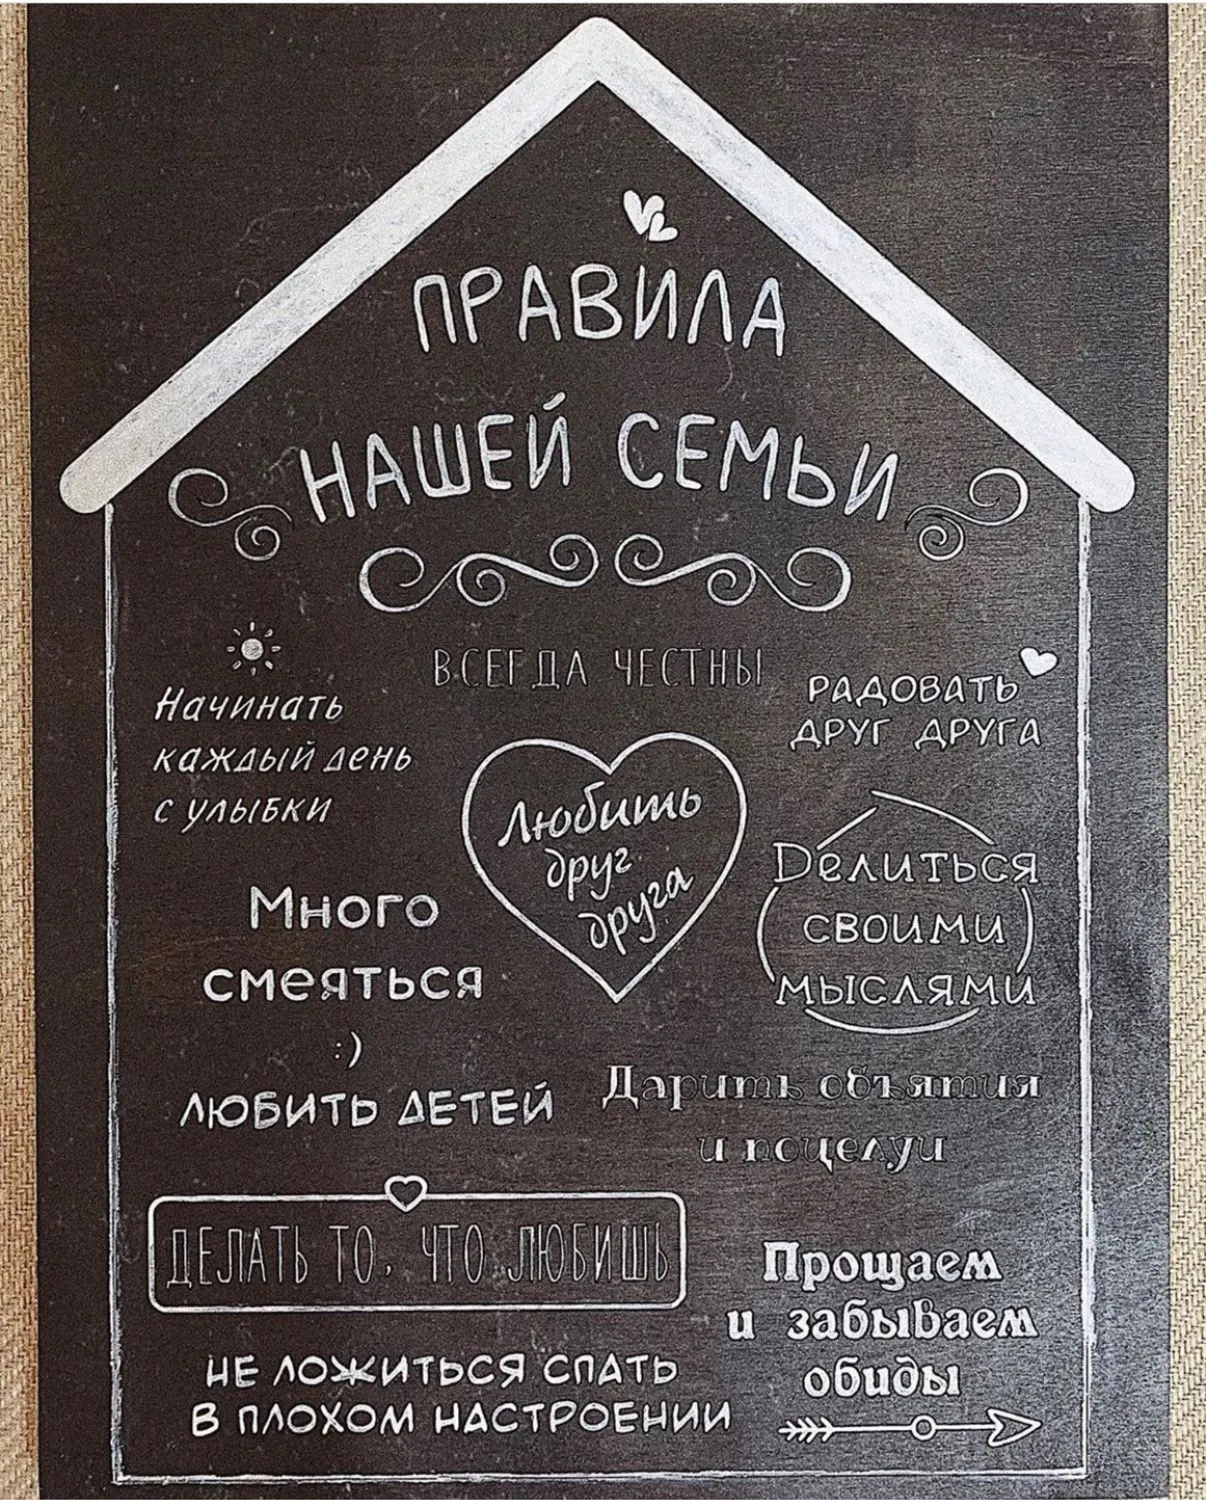 ПРАВИЛА
НАШЕЙ СЕМЬИ
ВСЕГДА ЧЕСТНЫ
Начинать
каждый день
с улыбки
РАДОВАТЬ
ДРУГ ДРУГА
Любить
друг
друга
Делиться
своими
мыслями
Много
смеяться
:)
ЛЮБИТЬ ДЕТЕЙ
Дарить объятия
и поцелуи
ДЕЛАТЬ ТО, ЧТО ЛЮБИШЬ
Прощаем
и забываем
обиды
НЕ ЛОЖИТЬСЯ СПАТЬ
В ПЛОХОМ НАСТРОЕНИИ